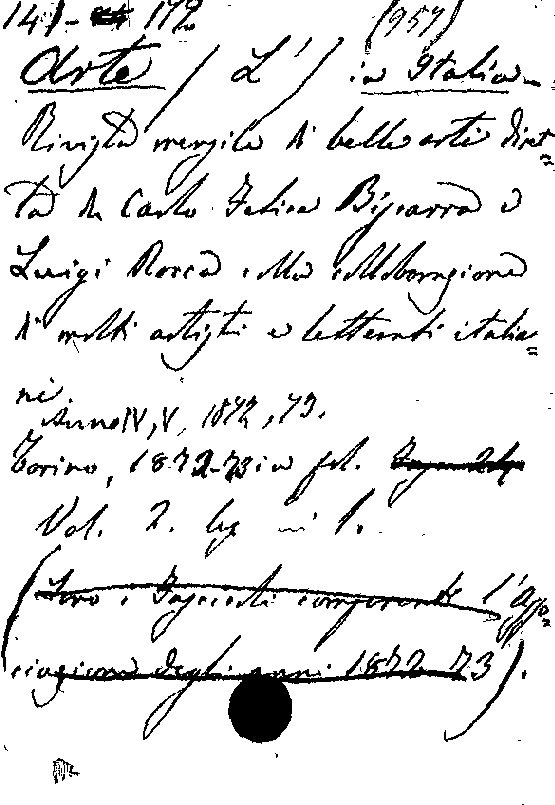 141 - 172 (957)
Arte / L' / in Italia.
Rivista mensile di belle arti diret=
ta da Carlo Felice Biscarra e
Luigi Rocca colla collaborazione
di molti artisti e letterati italia=
ni.
Anno IV, V, 1872, 73.
Torino, 1872-73 in fol. Fasc. 24
Vol. 2. leg in 1.
(Sono i Fascicoli componenti l'Asso=
ciazione degli anni 1872 73).